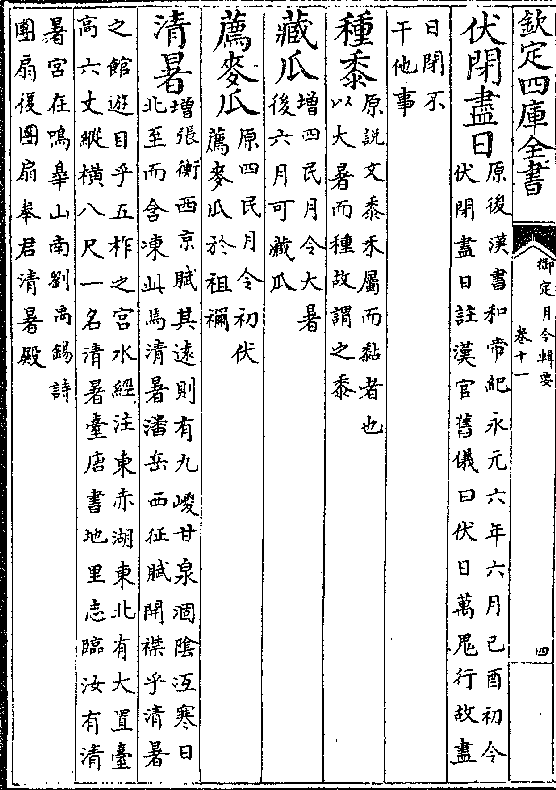 欽定四庫全書
御定月令輯要
卷十一
四
伏閉盡日
原後漢書和帝紀永元六年六月己酉初令
伏閉盡日註漢官舊儀曰伏日萬鬼行故盡
日閉不
干他事
種黍
原說文黍禾屬而黏者也
以大暑而種故謂之黍
藏瓜
增四民月令大暑
後六月可藏瓜
薦麥瓜
原四民月令初伏
薦麥瓜於祖禰
清暑
增張衡西京賦其遠則有九嵕甘泉涸陰沍寒日
北至而含凍此焉清暑潘岳西征賦開襟乎清暑
之館遊目乎五柞之宮水經注東赤湖東北有大置臺
高六丈縱橫八尺一名清暑臺唐書地里志臨汝有清
暑宮在鳴皋山南劉禹錫詩
團扇復團扇奉君清暑殿